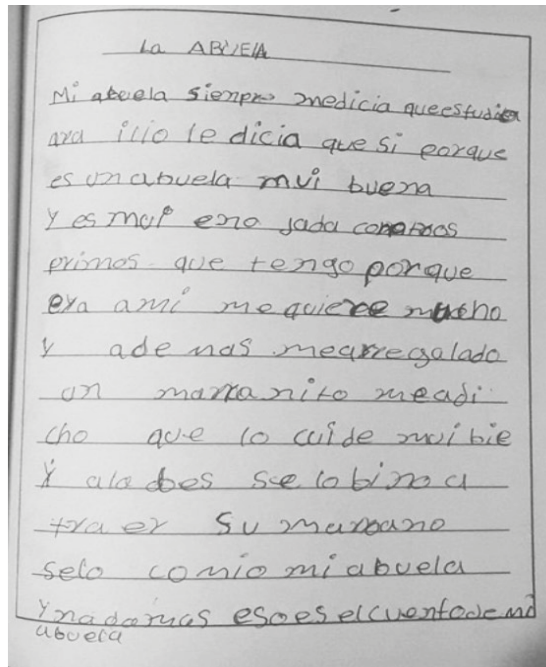 La ABUELA
Mi abuela sienpre medicia queestudi
ara illo le dicia que si porque
es un abuela mui buena
Y es mui eno jada con mos
primos que tengo porque
eya ami me quiere mucho
y ade mas mearregalado
un marranito meadi
cho que lo cuide mui bie
Y ala bes se lo bino a
tra er su marrano
selo comio mi abuela
Y nadamas esoes elcuentode mi
abuela